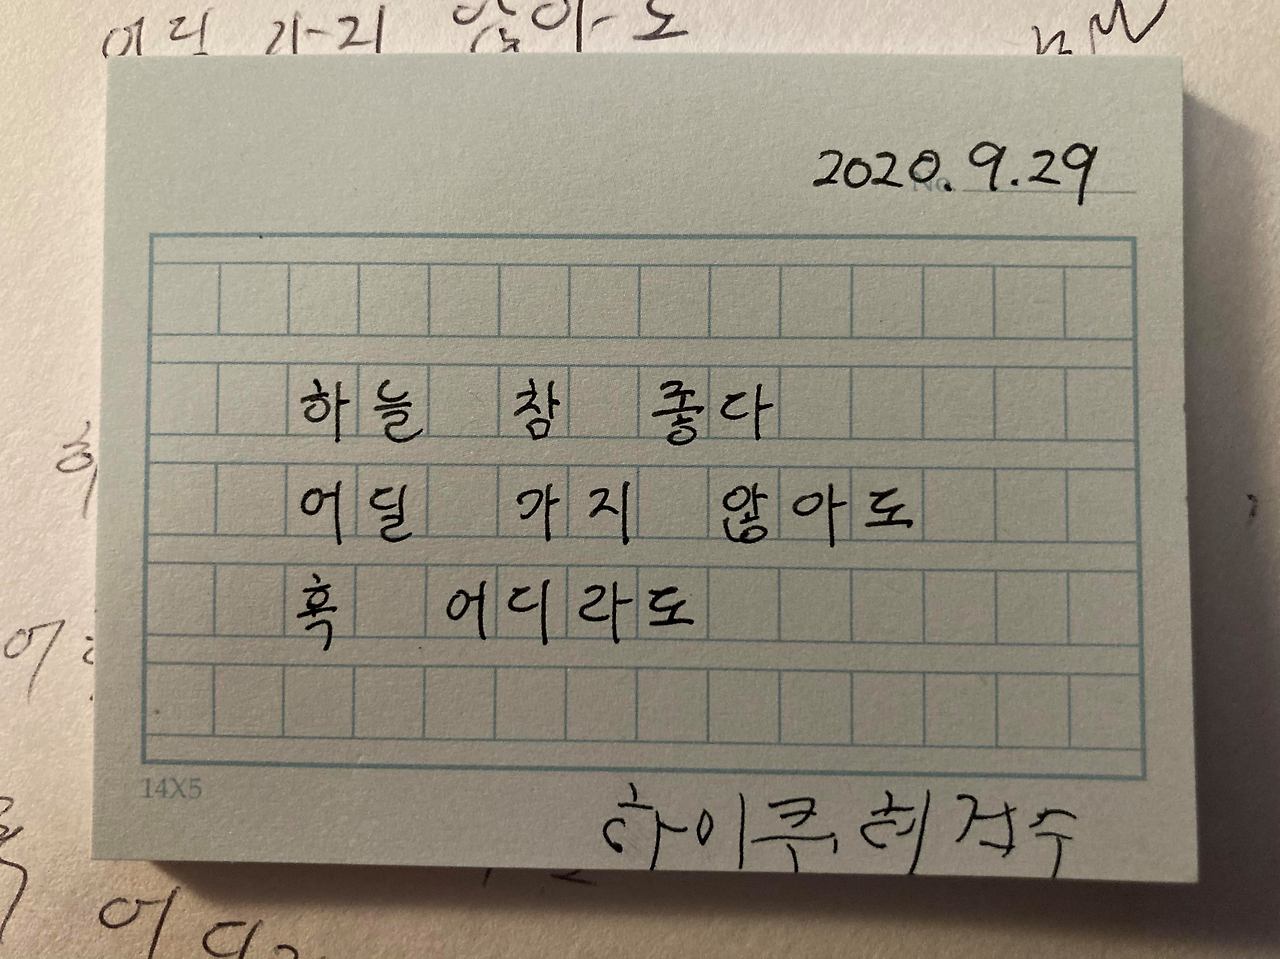 어디 가지 않아도
2020.9.29
No.
하늘 참 좋다
어딜 가지 않아도
혹 어디라도
14X5
하이쿠,
어디